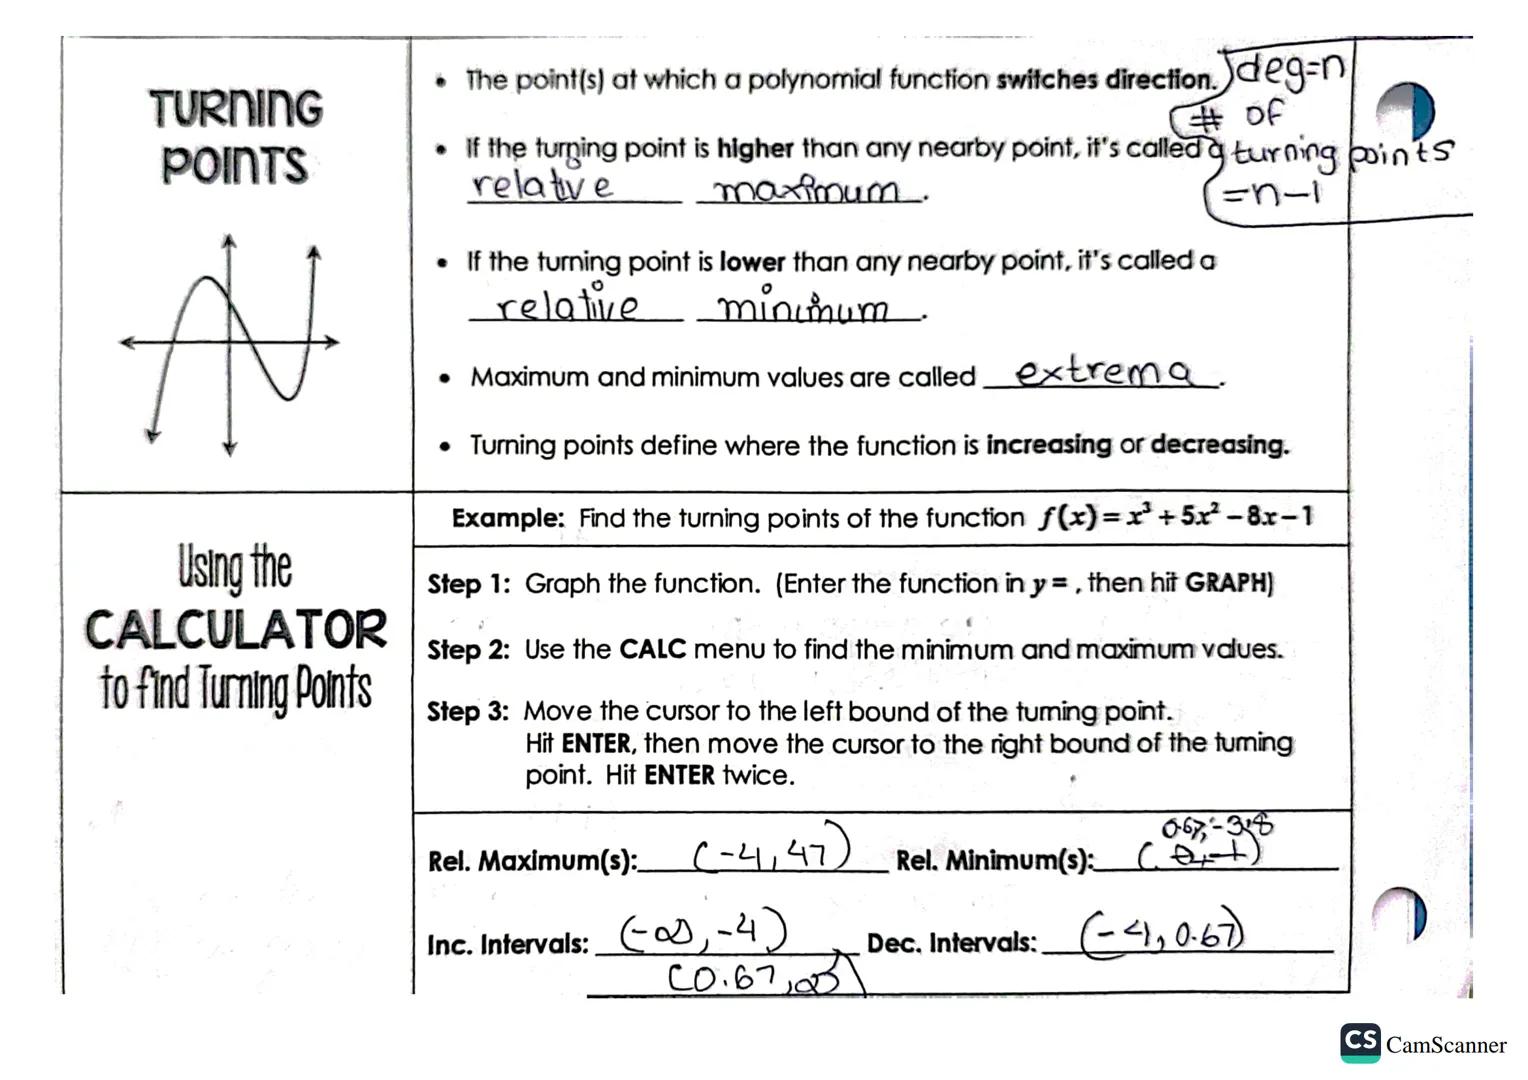 TURNING
POINTS
• The point(s) at which a polynomial function switches direction.
deg=n
# of
turning points
=n-1
• If the turning point is higher than any nearby point, it's called a
relative maximum.
• If the turning point is lower than any nearby point, it's called a
relative minimum.
• Maximum and minimum values are called extrema.
• Turning points define where the function is increasing or decreasing.
Using the
CALCULATOR
to find Turning Points
Example: Find the turning points of the function f(x)=x³+5x²-8x-1
Step 1: Graph the function. (Enter the function in y=, then hit GRAPH)
Step 2: Use the CALC menu to find the minimum and maximum values.
Step 3: Move the cursor to the left bound of the turning point.
Hit ENTER, then move the cursor to the right bound of the turning
point. Hit ENTER twice.
0.67,-3.8
Rel. Maximum(s): (-4,47) Rel. Minimum(s): ( )
Inc. Intervals: (-∞,-4) Dec. Intervals: (-4,0.67)
(0.67,∞)
CS CamScanner